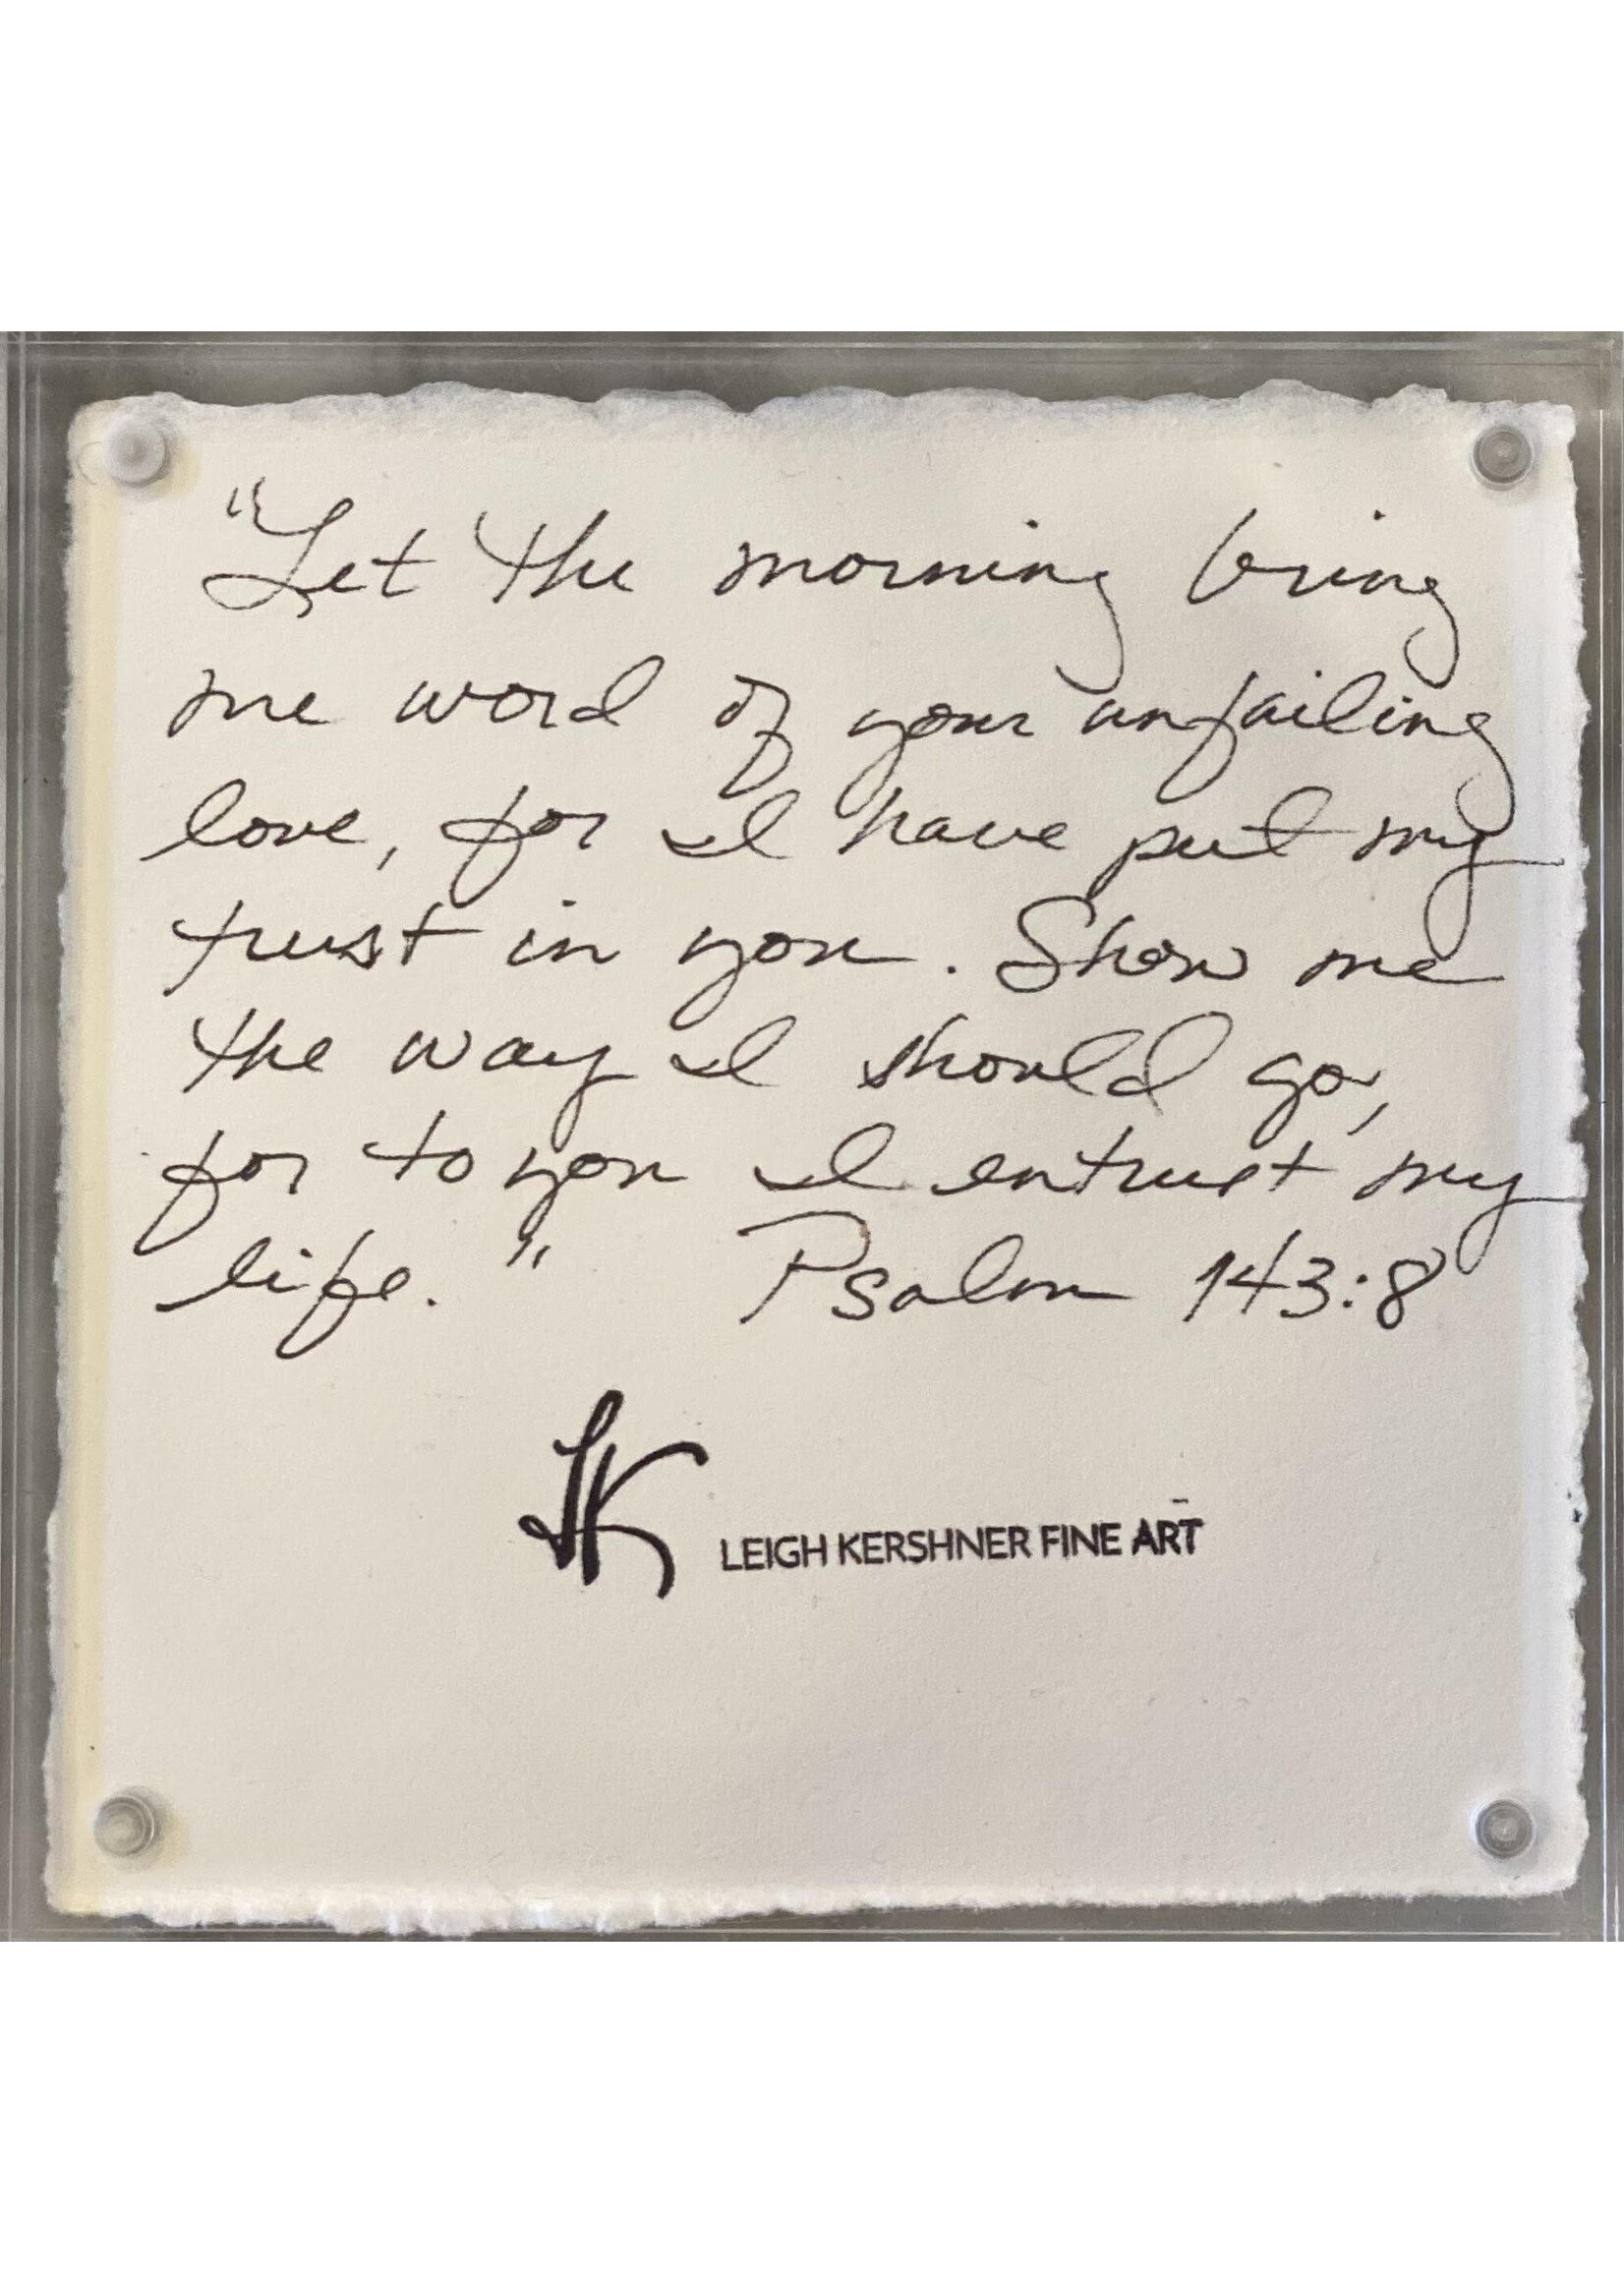 "Let the morning bring
me word of your unfailing
love, for I have put my
trust in you. Show me
the way I should go,
for to you I entrust my
life." Psalm 143:8
LK LEIGH KERSHNER FINE ART